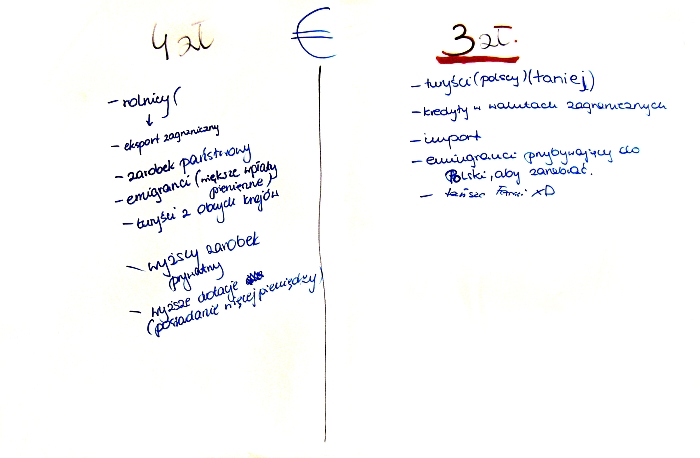 4 zł
€
- rolnicy (
↓
- eksport zagraniczny
- zarobek państwowy
- emigranci (większe wpłaty
pieniężne)
- turyści z obcych krajów
- wyższy zarobek
prywatny
- wyższe dotacje
(posiadanie więcej pieniędzy)
3 zł.
- turyści (polscy) (taniej)
- kredyty w walutach zagranicznych
- import
- emigranci przybywający do
Polski, aby zarabiać.
- tańsze XD